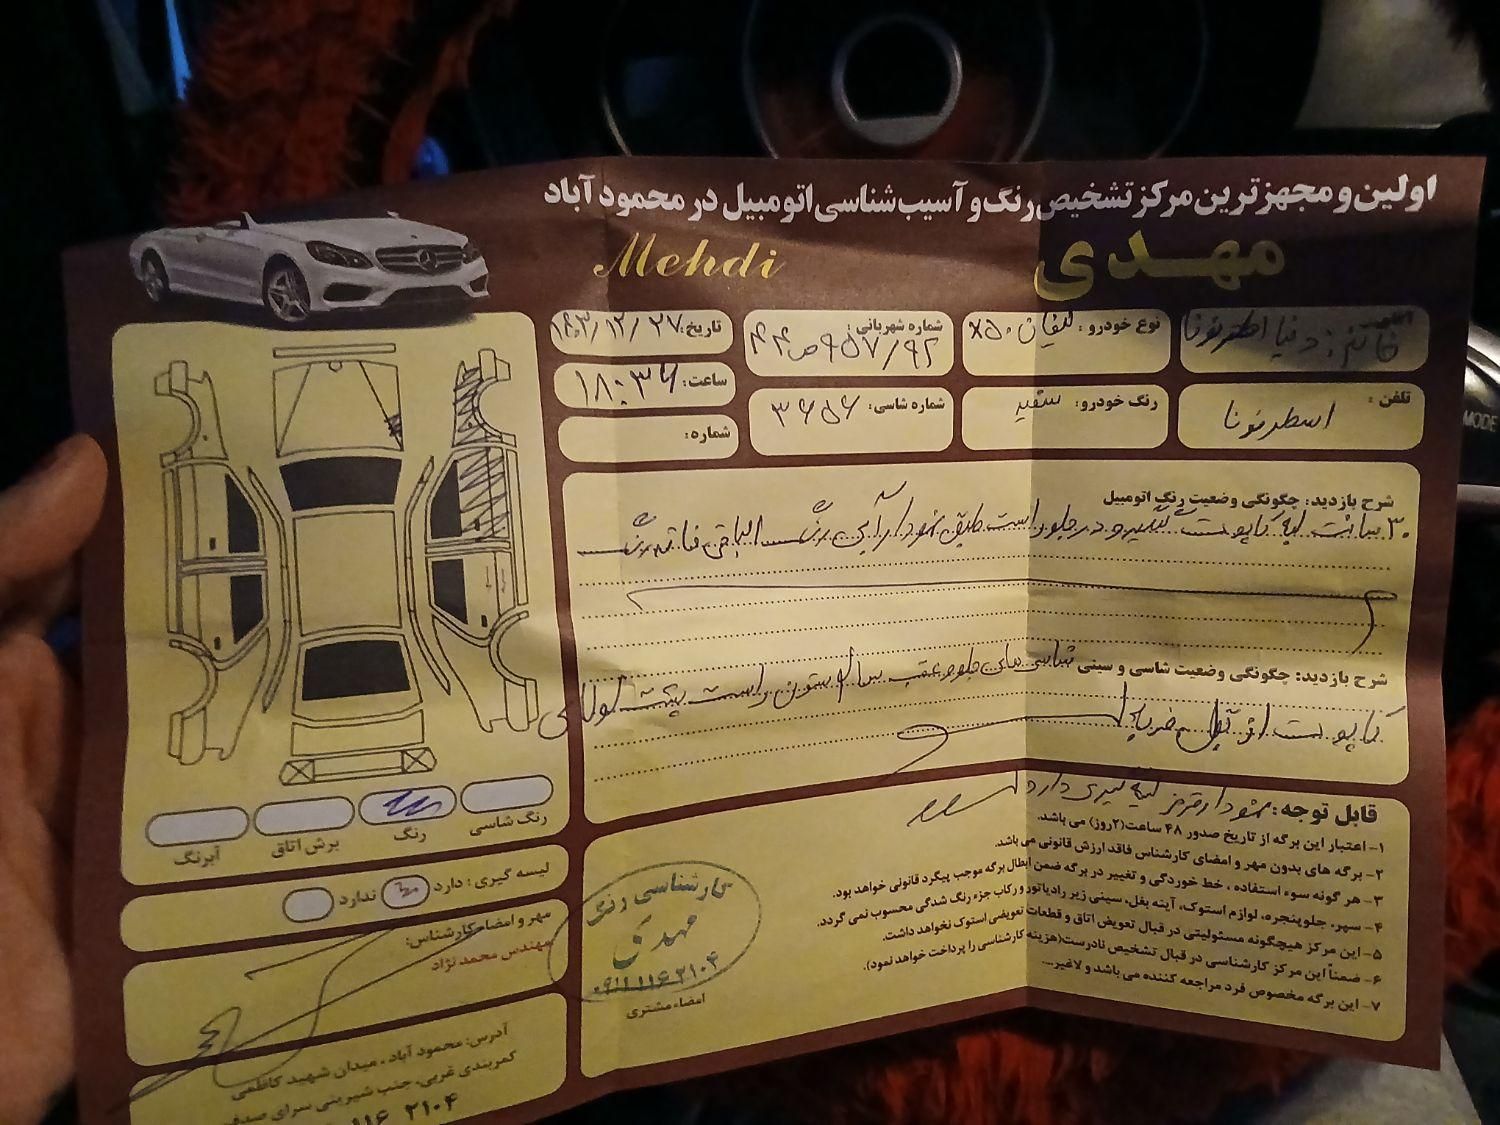 اولین و مجهزترین مرکز تشخیص رنگ و آسیب‌شناسی اتومبیل در محمودآباد
مهدی
Mehdi
خانم: دنیا
نوع خودرو: لیفان X50
شماره شهربانی:
تاریخ: ۱۴۰۳/۱۲/۲۷
ساعت: ۱۸:۳۶
تلفن:
رنگ خودرو: سفید
شماره شاسی: ۳۶۵۶
شماره:
شرح بازدید: چگونگی وضعیت رنگ اتومبیل
۳۰ سانت لبه کاپوت گلگیر و در جلو راست طبق نمودار آبی رنگ الباقی فاقد رنگ
شرح بازدید: چگونگی وضعیت شاسی و سینی شاسی های جلو و عقب سالم ستون راست پشت
کاپوت
قابل توجه: نمودار قرمز لیسه گیری دارد
۱- اعتبار این برگه از تاریخ صدور ۴۸ ساعت (۲روز) می باشد.
۲- برگه های بدون مهر و امضای کارشناس فاقد ارزش قانونی می باشد.
۳- هر گونه سوء استفاده ، خط خوردگی و تغییر در برگه ضمن ابطال برگه موجب پیگرد قانونی خواهد بود.
۴- سپر، جلوپنجره، لوازم استوک، آینه بغل، سینی زیر رادیاتور و رکاب جزء رنگ شدگی محسوب نمی گردد.
۵- این مرکز هیچگونه مسئولیتی در قبال تعویض اتاق و قطعات تعویضی استوک نخواهد داشت.
۶- ضمناً این مرکز کارشناسی در قبال تشخیص نادرست (هزینه کارشناسی را پرداخت خواهد نمود).
۷- این برگه مخصوص فرد مراجعه کننده می باشد و لاغیر...
رنگ شاسی
رنگ
برش اتاق
آبرنگ
لیسه گیری: دارد ندارد
مهر و امضاء کارشناس:
مهندس محمدنژاد
کارشناسی رنگ
مهدی
۰۹۱۱۱۱۶۲۱۰۴
امضاء مشتری
آدرس: محمودآباد ، میدان شهید کاظمی
کمربندی غربی، جنب شیرینی سرای صدف
۱۱۶ ۲۱۰۴
MODE